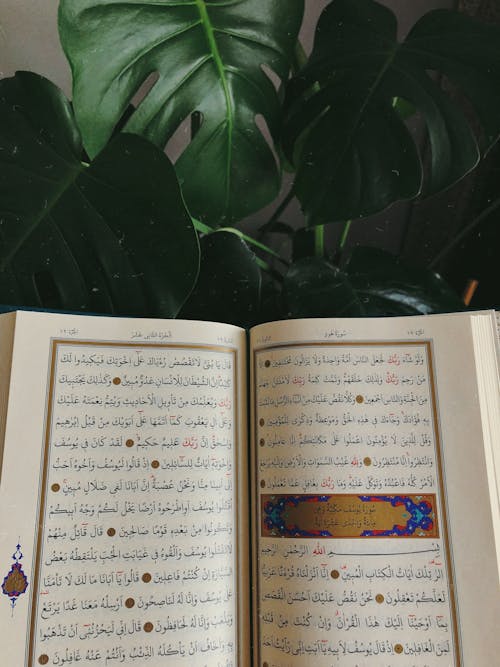 سُورَةُ هُودٍ
وَلَوْ شَاءَ رَبُّكَ لَجَعَلَ النَّاسَ اُمَّةً وَاحِدَةً وَلَا يَزَالُونَ مُخْتَلِفِينَ
اِلَّا مَنْ رَحِمَ رَبُّكَ وَلِذٰلِكَ خَلَقَهُمْ وَتَمَّتْ كَلِمَةُ رَبِّكَ لَاَمْلَـَٔنَّ جَهَنَّمَ
مِنَ الْجِنَّةِ وَالنَّاسِ اَجْمَعِينَ وَكُلًّا نَقُصُّ عَلَيْكَ مِنْ اَنْبَاءِ الرُّسُلِ مَا نُثَبِّتُ
بِهِ فُؤَادَكَ وَجَاءَكَ فِي هٰذِهِ الْحَقُّ وَمَوْعِظَةٌ وَذِكْرٰى لِلْمُؤْمِنِينَ
وَقُلْ لِلَّذِينَ لَا يُؤْمِنُونَ اعْمَلُوا عَلٰى مَكَانَتِكُمْ اِنَّا عَامِلُونَ
وَانْتَظِرُوا اِنَّا مُنْتَظِرُونَ وَلِلّٰهِ غَيْبُ السَّمٰوَاتِ وَالْاَرْضِ وَاِلَيْهِ يُرْجَعُ
الْاَمْرُ كُلُّهُ فَاعْبُدْهُ وَتَوَكَّلْ عَلَيْهِ وَمَا رَبُّكَ بِغَافِلٍ عَمَّا تَعْمَلُونَ
سُورَةُ يُوسُفَ مَكِّيَّةٌ وَهِيَ
مِائَةٌ وَاِحْدٰى عَشْرَةَ اٰيَةً
بِسْمِ اللّٰهِ الرَّحْمٰنِ الرَّحِيمِ
الٓرٰ تِلْكَ اٰيَاتُ الْكِتَابِ الْمُبِينِ اِنَّا اَنْزَلْنَاهُ قُرْاٰنًا عَرَبِيًّا
لَعَلَّكُمْ تَعْقِلُونَ نَحْنُ نَقُصُّ عَلَيْكَ اَحْسَنَ الْقَصَصِ
بِمَا اَوْحَيْنَا اِلَيْكَ هٰذَا الْقُرْاٰنَ وَاِنْ كُنْتَ مِنْ قَبْلِهِ
لَمِنَ الْغَافِلِينَ اِذْ قَالَ يُوسُفُ لِاَبِيهِ يَا اَبَتِ اِنِّي رَاَيْتُ اَحَدَ
اَلْجُزْءُ الثَّانِي عَشَرَ
قَالَ يَا بُنَيَّ لَا تَقْصُصْ رُءْيَاكَ عَلٰى اِخْوَتِكَ فَيَكِيدُوا لَكَ
كَيْدًا اِنَّ الشَّيْطَانَ لِلْاِنْسَانِ عَدُوٌّ مُبِينٌ وَكَذٰلِكَ يَجْتَبِيكَ
رَبُّكَ وَيُعَلِّمُكَ مِنْ تَأْوِيلِ الْاَحَادِيثِ وَيُتِمُّ نِعْمَتَهُ عَلَيْكَ
وَعَلٰى اٰلِ يَعْقُوبَ كَمَا اَتَمَّهَا عَلٰى اَبَوَيْكَ مِنْ قَبْلُ اِبْرٰهِيمَ
وَاِسْحٰقَ اِنَّ رَبَّكَ عَلِيمٌ حَكِيمٌ لَقَدْ كَانَ فِي يُوسُفَ
وَاِخْوَتِهِ اٰيَاتٌ لِلسَّائِلِينَ اِذْ قَالُوا لَيُوسُفُ وَاَخُوهُ اَحَبُّ
اِلٰى اَبِينَا مِنَّا وَنَحْنُ عُصْبَةٌ اِنَّ اَبَانَا لَفِي ضَلَالٍ مُبِينٍ
اُقْتُلُوا يُوسُفَ اَوِ اطْرَحُوهُ اَرْضًا يَخْلُ لَكُمْ وَجْهُ اَبِيكُمْ
وَتَكُونُوا مِنْ بَعْدِهِ قَوْمًا صَالِحِينَ قَالَ قَائِلٌ مِنْهُمْ
لَا تَقْتُلُوا يُوسُفَ وَاَلْقُوهُ فِي غَيَابَتِ الْجُبِّ يَلْتَقِطْهُ بَعْضُ
السَّيَّارَةِ اِنْ كُنْتُمْ فَاعِلِينَ قَالُوا يَا اَبَانَا مَا لَكَ لَا تَأْمَنَّا
عَلٰى يُوسُفَ وَاِنَّا لَهُ لَنَاصِحُونَ اَرْسِلْهُ مَعَنَا غَدًا يَرْتَعْ
وَيَلْعَبْ وَاِنَّا لَهُ لَحَافِظُونَ قَالَ اِنِّي لَيَحْزُنُنِي اَنْ تَذْهَبُوا
بِهِ وَاَخَافُ اَنْ يَأْكُلَهُ الذِّئْبُ وَاَنْتُمْ عَنْهُ غَافِلُونَ